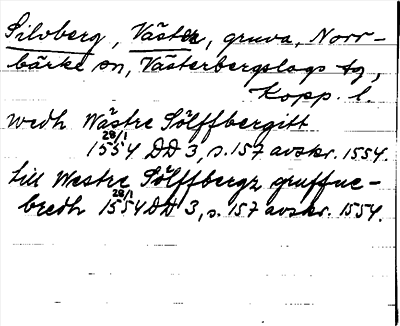 Silvberg, Västra, gruva, Norr-
bärke sn, Västerbergslags tg,
Kopp. l.
wedh Wästre Sölffbergitt
28/1 1554 DD 3, s. 157 avskr. 1554.
till Westre Sölffbergz gruffue-
bredh 28/1 1554 DD 3, s. 157 avskr. 1554.